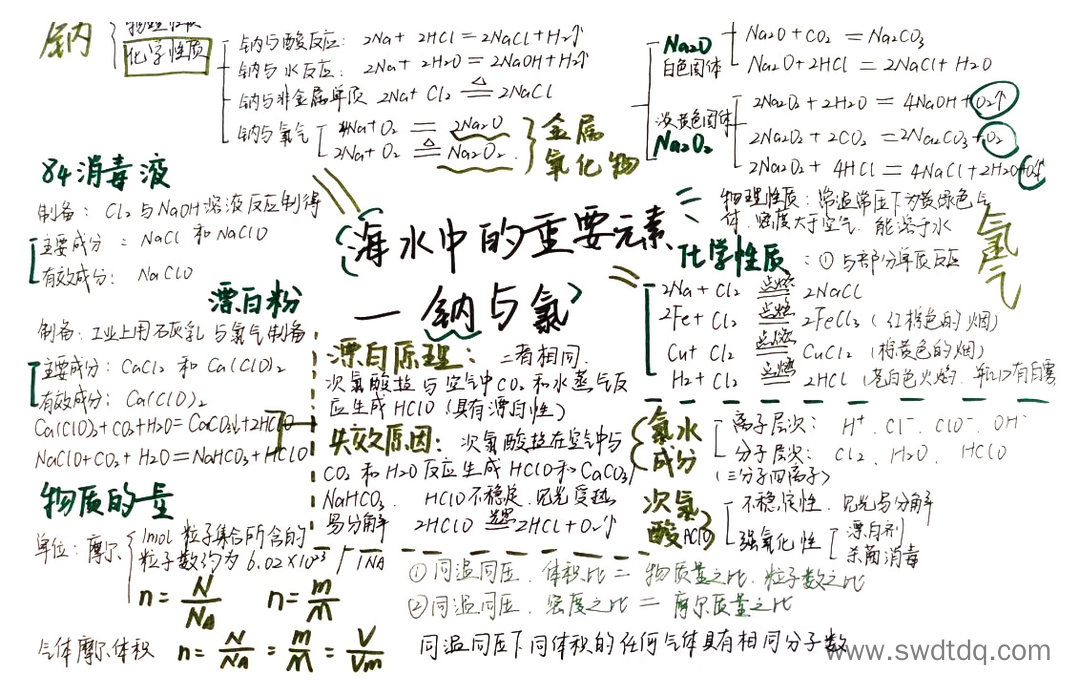 钠
物理性质
化学性质
钠与酸反应: 2Na + 2HCl = 2NaCl + H₂↑
钠与水反应: 2Na + 2H₂O = 2NaOH + H₂↑
钠与非金属单质 2Na + Cl₂ =△= 2NaCl
钠与氧气
4Na + O₂ = 2Na₂O
2Na + O₂ =△= Na₂O₂.
金属
氧化物
Na₂O
白色固体
Na₂O + CO₂ = Na₂CO₃
Na₂O + 2HCl = 2NaCl + H₂O
淡黄色固体
Na₂O₂
2Na₂O₂ + 2H₂O = 4NaOH + O₂↑
2Na₂O₂ + 2CO₂ = 2Na₂CO₃ + O₂
2Na₂O₂ + 4HCl = 4NaCl + 2H₂O + O₂↑
84消毒液
制备: Cl₂与NaOH溶液反应制得
主要成分: NaCl 和 NaClO
有效成分: NaClO
漂白粉
制备: 工业上用石灰乳与氯气制备
主要成分: CaCl₂ 和 Ca(ClO)₂
有效成分: Ca(ClO)₂
Ca(ClO)₂+CO₂+H₂O=CaCO₃↓+2HClO
NaClO+CO₂+H₂O=NaHCO₃+HClO
海水中的重要元素
—钠与氯
氯气
物理性质: 常温常压下为黄绿色气
体. 密度大于空气. 能溶于水
化学性质: ①与部分单质反应
2Na + Cl₂ =点燃= 2NaCl
2Fe + Cl₂ =点燃= 2FeCl₃ (红棕色的烟)
Cu + Cl₂ =点燃= CuCl₂ (棕黄色的烟)
H₂ + Cl₂ =点燃= 2HCl (苍白色火焰. 瓶口有白雾
漂白原理: 二者相同.
次氯酸盐与空气中CO₂和水蒸气反
应生成HClO(具有漂白性)
失效原因: 次氯酸盐在空气中与
CO₂和H₂O反应生成HClO和CaCO₃/
NaHCO₃. HClO不稳定. 见光受热
易分解 2HClO =光照= 2HCl + O₂↑
氯水
成分
离子层次: H⁺. Cl⁻. ClO⁻. OH⁻
分子层次: Cl₂. H₂O. HClO
(三分子四离子)
次氯
酸
HClO
不稳定性. 见光易分解
强氧化性
漂白剂
杀菌消毒
物质的量
单位: 摩尔
1mol 粒子集合所含的
粒子数约为6.02×10²³ / 1NA
n = N/NA n = m/M
气体摩尔体积 n = N/NA = m/M = V/Vm
①同温同压. 体积比=物质量之比. 粒子数之比
②同温同压. 密度之比=摩尔质量之比
同温同压下同体积的任何气体具有相同分子数
www.swdtdq.com